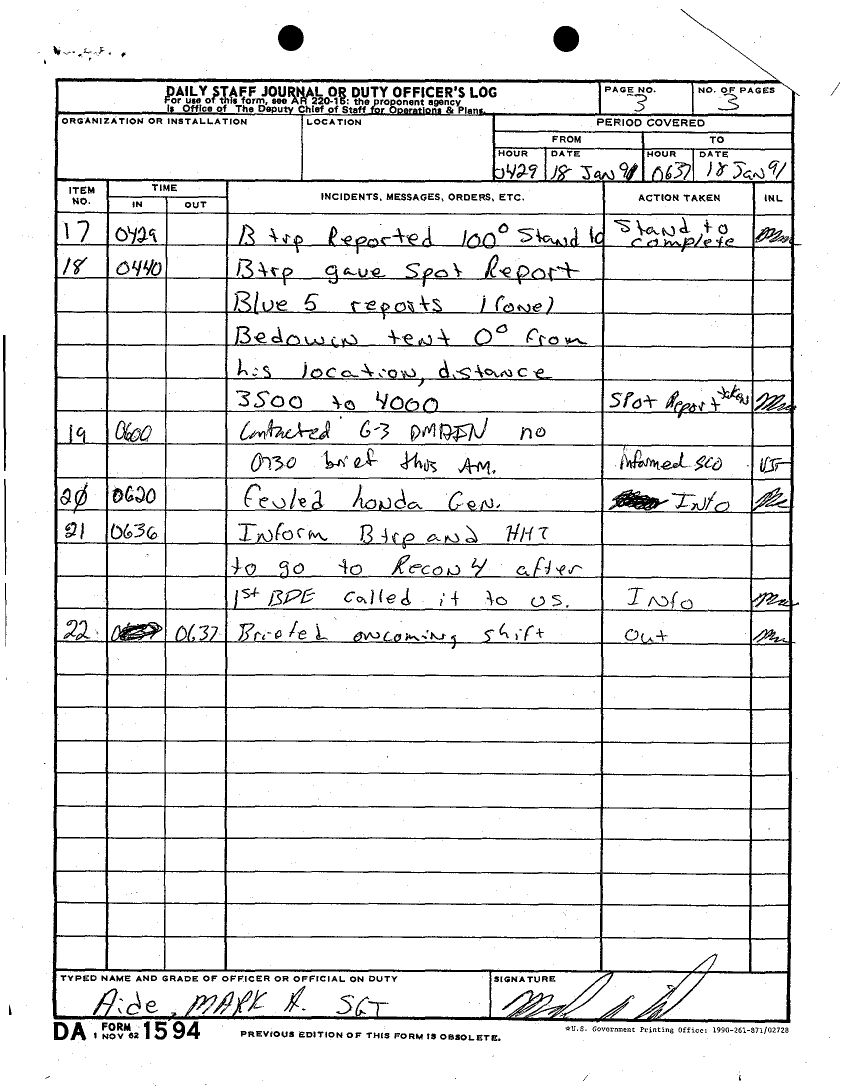 DAILY STAFF JOURNAL OR DUTY OFFICER'S LOG
For use of this form, see AR 220-15; the proponent agency
is Office of The Deputy Chief of Staff for Operations & Plans.
PAGE NO.
3
NO. OF PAGES
3
ORGANIZATION OR INSTALLATION
LOCATION
PERIOD COVERED
FROM
TO
HOUR DATE HOUR DATE
0429 18 Jan 91 0637 18 Jan 91
ITEM NO.
TIME
IN OUT
INCIDENTS, MESSAGES, ORDERS, ETC.
ACTION TAKEN
INL
17 0429 B trp Reported 100° Stand to Stand to complete
18 0440 Btrp gave Spot Report
Blue 5 reports 1 (one)
Bedowin tent 0° from
his location, distance
3500 to 4000 Spot Report taken
19 0600 Contacted G-3 DMAIN no
0730 brief this AM. Informed SCO
20 0620 feuled honda Gen. Info
21 0636 Inform Btrp and HHT
to go to Recon 4 after
1st BDE called it to us. Info
22 0637 Briefed oncoming shift Out
TYPED NAME AND GRADE OF OFFICER OR OFFICIAL ON DUTY
Aide, MARK A. SGT
SIGNATURE
DA FORM 1 NOV 62 1594
PREVIOUS EDITION OF THIS FORM IS OBSOLETE.
*U.S. Government Printing Office: 1990-261-871/02728